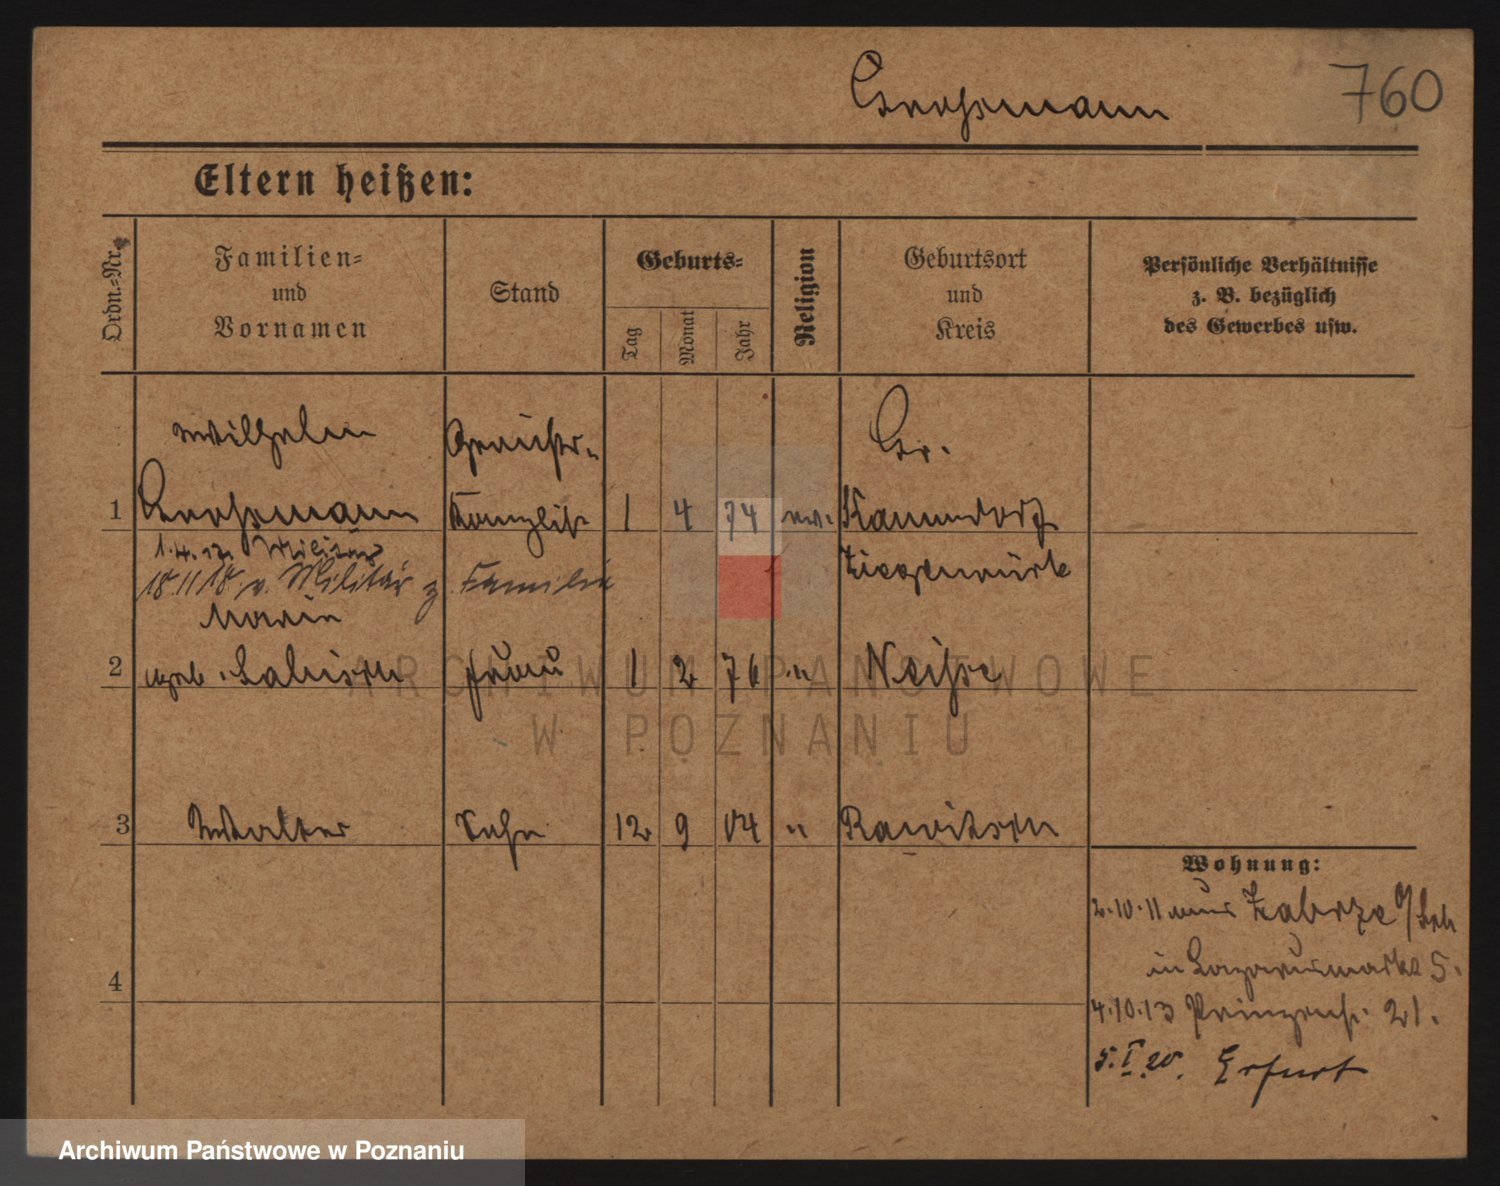 Grossmann
760
Eltern heißen:
Ordn.-Nr.
Familien-
und
Vornamen
Stand
Geburts-
Tag
Monat
Jahr
Religion
Geburtsort
und
Kreis
Persönliche Verhältnisse
z. B. bezüglich
des Gewerbes usw.
Wilhelm
1 Grossmann
Kanzlist
1 4 74 ev.
Gr.
Kammsdorf
Ziegenrück
Militär
18.11.18. v. Militär z. Familie
Maria
2 geb. Frau 1 2 76 " Neisse
3 Walter Sohn 12 9 04 " Rawitsch
4
Wohnung:
2.10.11 aus Zabrze O/Sch
in Lazarusmarkt 5.
4.10.13 Prinzenstr. 21.
5.I.20. Erfurt
ARCHIWUM PAŃSTWOWE
W POZNANIU
Archiwum Państwowe w Poznaniu